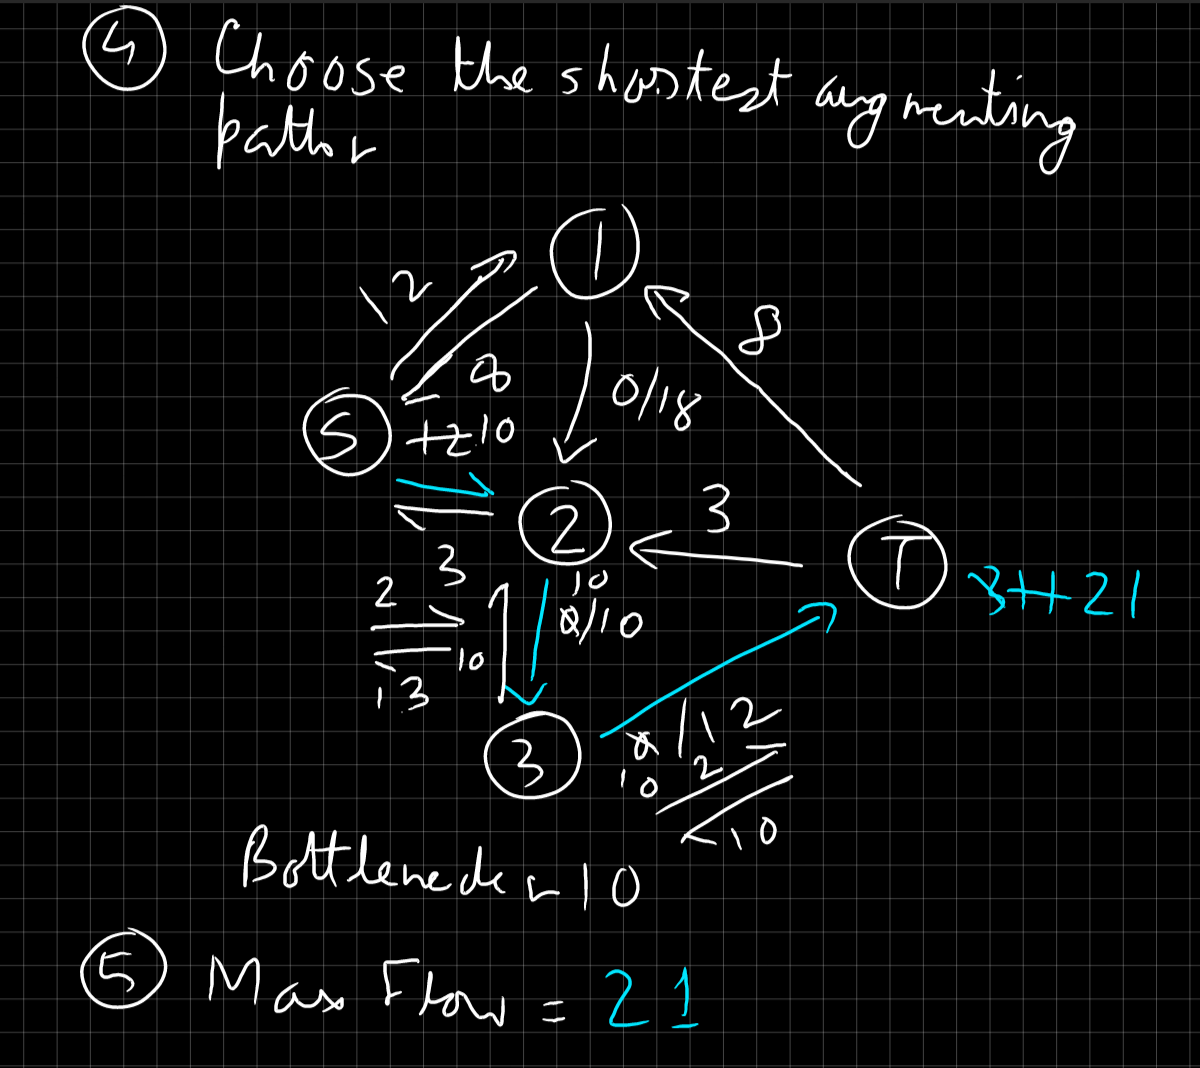 ④ Choose the shortest augmenting
path
1
12
8
8
0/18
S
10
2
3
T
21
3
10
0/10
2
10
13
3
0/12
10
2
10
Bottleneck = 10
⑤ Max Flow = 21